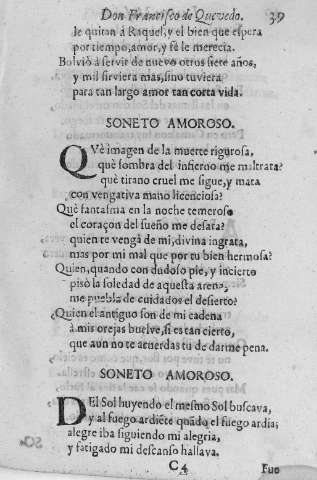 Don Francisco de Quevedo. 39
le quitan à Raquel, y el bien que espera
por tiempo, amor, y fè le merecia.
Bolviò a servir de nuevo otros siete años,
y mil sirviera mas, sino tuviera
para tan largo amor tan corta vida.
SONETO AMOROSO.
QVè imagen de la muerte rigurosa,
què sombra del infierno me maltrata?
què tirano cruel me sigue, y mata
con vengativa mano licenciosa?
Què fantasma en la noche temerosa
el coraçon del sueño me desata?
quien te venga de mi, divina ingrata,
mas por mi mal que por tu bien hermosa?
Quien, quando con dudoso pie, y incierto
pisò la soledad de aquesta arena,
me puebla de cuidados el desierto?
Quien el antiguo son de mi cadena
à mis orejas buelve, si es tan cierto,
que aun no te acuerdas tu de darme pena.
SONETO AMOROSO.
DEl Sol huyendo el mesmo Sol buscava,
y al fuego ardiẽte quãdo el fuego ardia;
alegre iba siguiendo mi alegria,
y fatigado mi descanso hallava.
C4 Fue